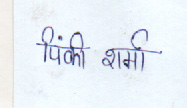 पिंकी शर्मा